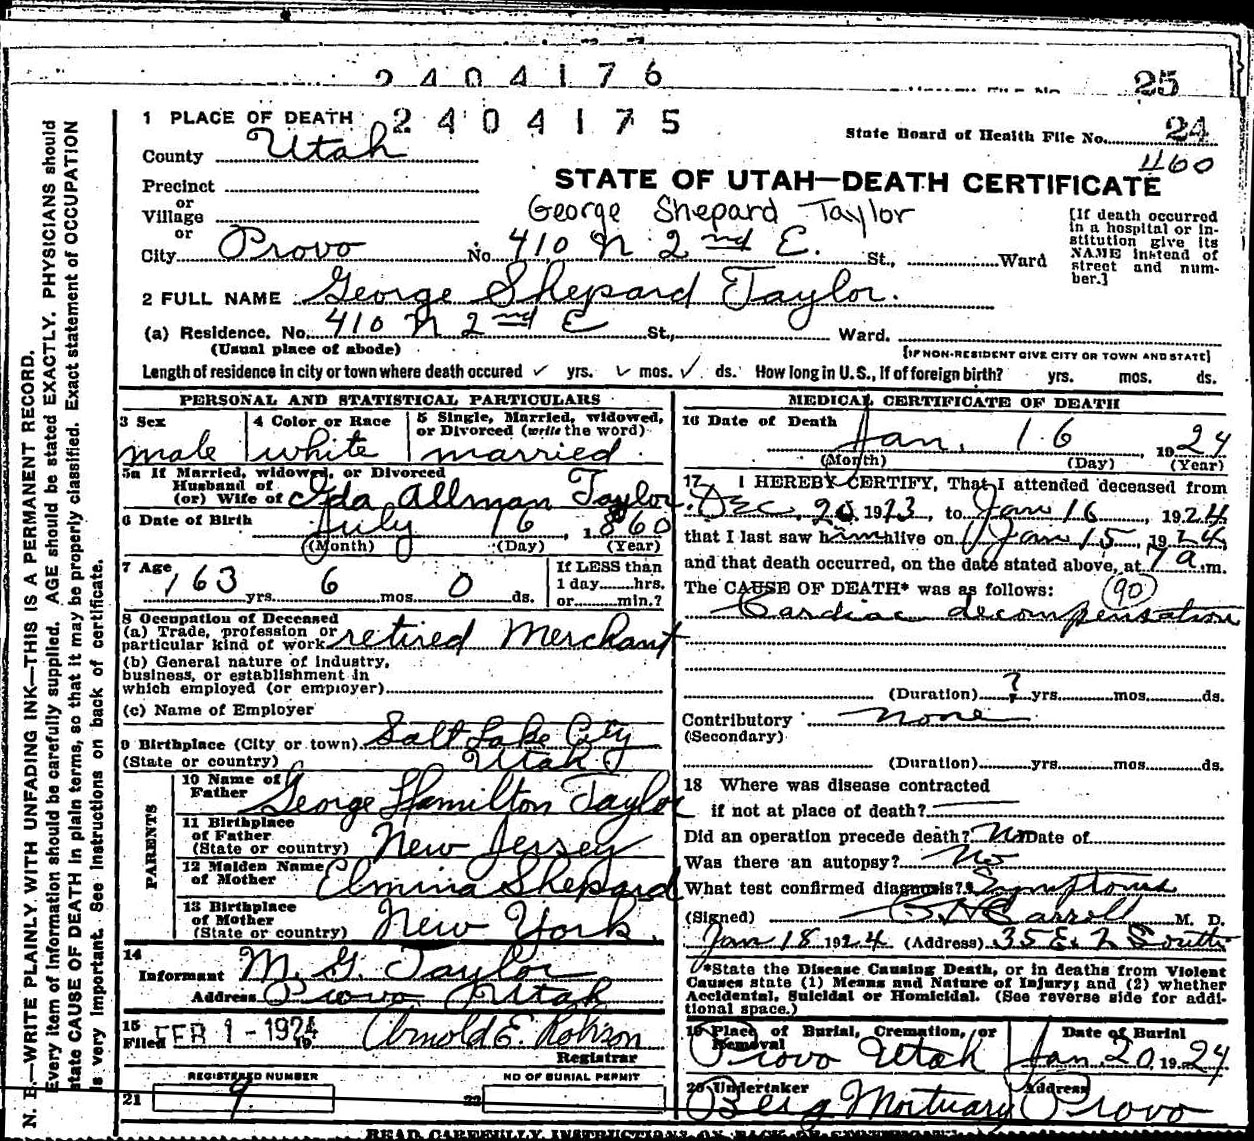 2404176
25
1 PLACE OF DEATH 2404175
State Board of Health File No. 24
County Utah
460
Precinct
STATE OF UTAH—DEATH CERTIFICATE
or
Village
George Shepard Taylor
or
City Provo No. 410 N 2nd E. St., Ward
[If death occurred in a hospital or institution give its NAME instead of street and number.]
2 FULL NAME George Shepard Taylor.
(a) Residence, No. 410 N 2nd E St., Ward.
(Usual place of abode)
[IF NON-RESIDENT GIVE CITY OR TOWN AND STATE]
Length of residence in city or town where death occured ✓ yrs. ✓ mos. ✓ ds. How long in U.S., if of foreign birth? yrs. mos. ds.
N. B.—WRITE PLAINLY WITH UNFADING INK—THIS IS A PERMANENT RECORD.
Every item of information should be carefully supplied. AGE should be stated EXACTLY. PHYSICIANS should
state CAUSE OF DEATH in plain terms, so that it may be properly classified. Exact statement of OCCUPATION
is very important. See instructions on back of certificate.
PERSONAL AND STATISTICAL PARTICULARS
3 Sex
male
4 Color or Race
white
5 Single, Married, widowed,
or Divorced (write the word)
married
5a If Married, widowed, or Divorced
Husband of
(or) Wife of Ida Allman Taylor
6 Date of Birth July 16, 1860
(Month) (Day) (Year)
7 Age
63 yrs. 6 mos. 0 ds.
If LESS than
1 day hrs.
or min.?
8 Occupation of Deceased
(a) Trade, profession or
particular kind of work retired Merchant
(b) General nature of industry,
business, or establishment in
which employed (or employer)
(c) Name of Employer
9 Birthplace (City or town) Salt Lake City
(State or country) Utah
PARENTS
10 Name of
Father George Hamilton Taylor
11 Birthplace
of Father
(State or country) New Jersey
12 Maiden Name
of Mother Elmina Shepard
13 Birthplace
of Mother
(State or country) New York.
14
Informant M. G. Taylor
Address Provo Utah
15
Filed FEB 1-1924 19 Arnold E. Robison
Registrar
REGISTERED NUMBER
21 9
NO OF BURIAL PERMIT
22
MEDICAL CERTIFICATE OF DEATH
16 Date of Death
Jan. 16, 1924
(Month) (Day) (Year)
17 I HEREBY CERTIFY, That I attended deceased from
Dec, 20 1923, to Jan 16, 1924
that I last saw him alive on Jan 15, 1924,
and that death occurred, on the date stated above, at 7 a.m.
The CAUSE OF DEATH* was as follows: 90
Cardiac decompensation
(Duration) ? yrs. mos. ds.
Contributory none
(Secondary)
(Duration) yrs. mos. ds.
18 Where was disease contracted
if not at place of death?
Did an operation precede death? no Date of
Was there an autopsy? no
What test confirmed diagnosis? Symptoms
(Signed) Carroll M. D.
Jan 18 1924 (Address) 35 E. 2 South
*State the Disease Causing Death, or in deaths from Violent
Causes state (1) Means and Nature of Injury; and (2) whether
Accidental, Suicidal or Homicidal. (See reverse side for additional space.)
19 Place of Burial, Cremation, or
Removal
Provo Utah
Date of Burial
Jan 20, 1924
20 Undertaker
Berg Mortuary
Address
Provo
READ CAREFULLY INSTRUCTIONS ON BACK OF